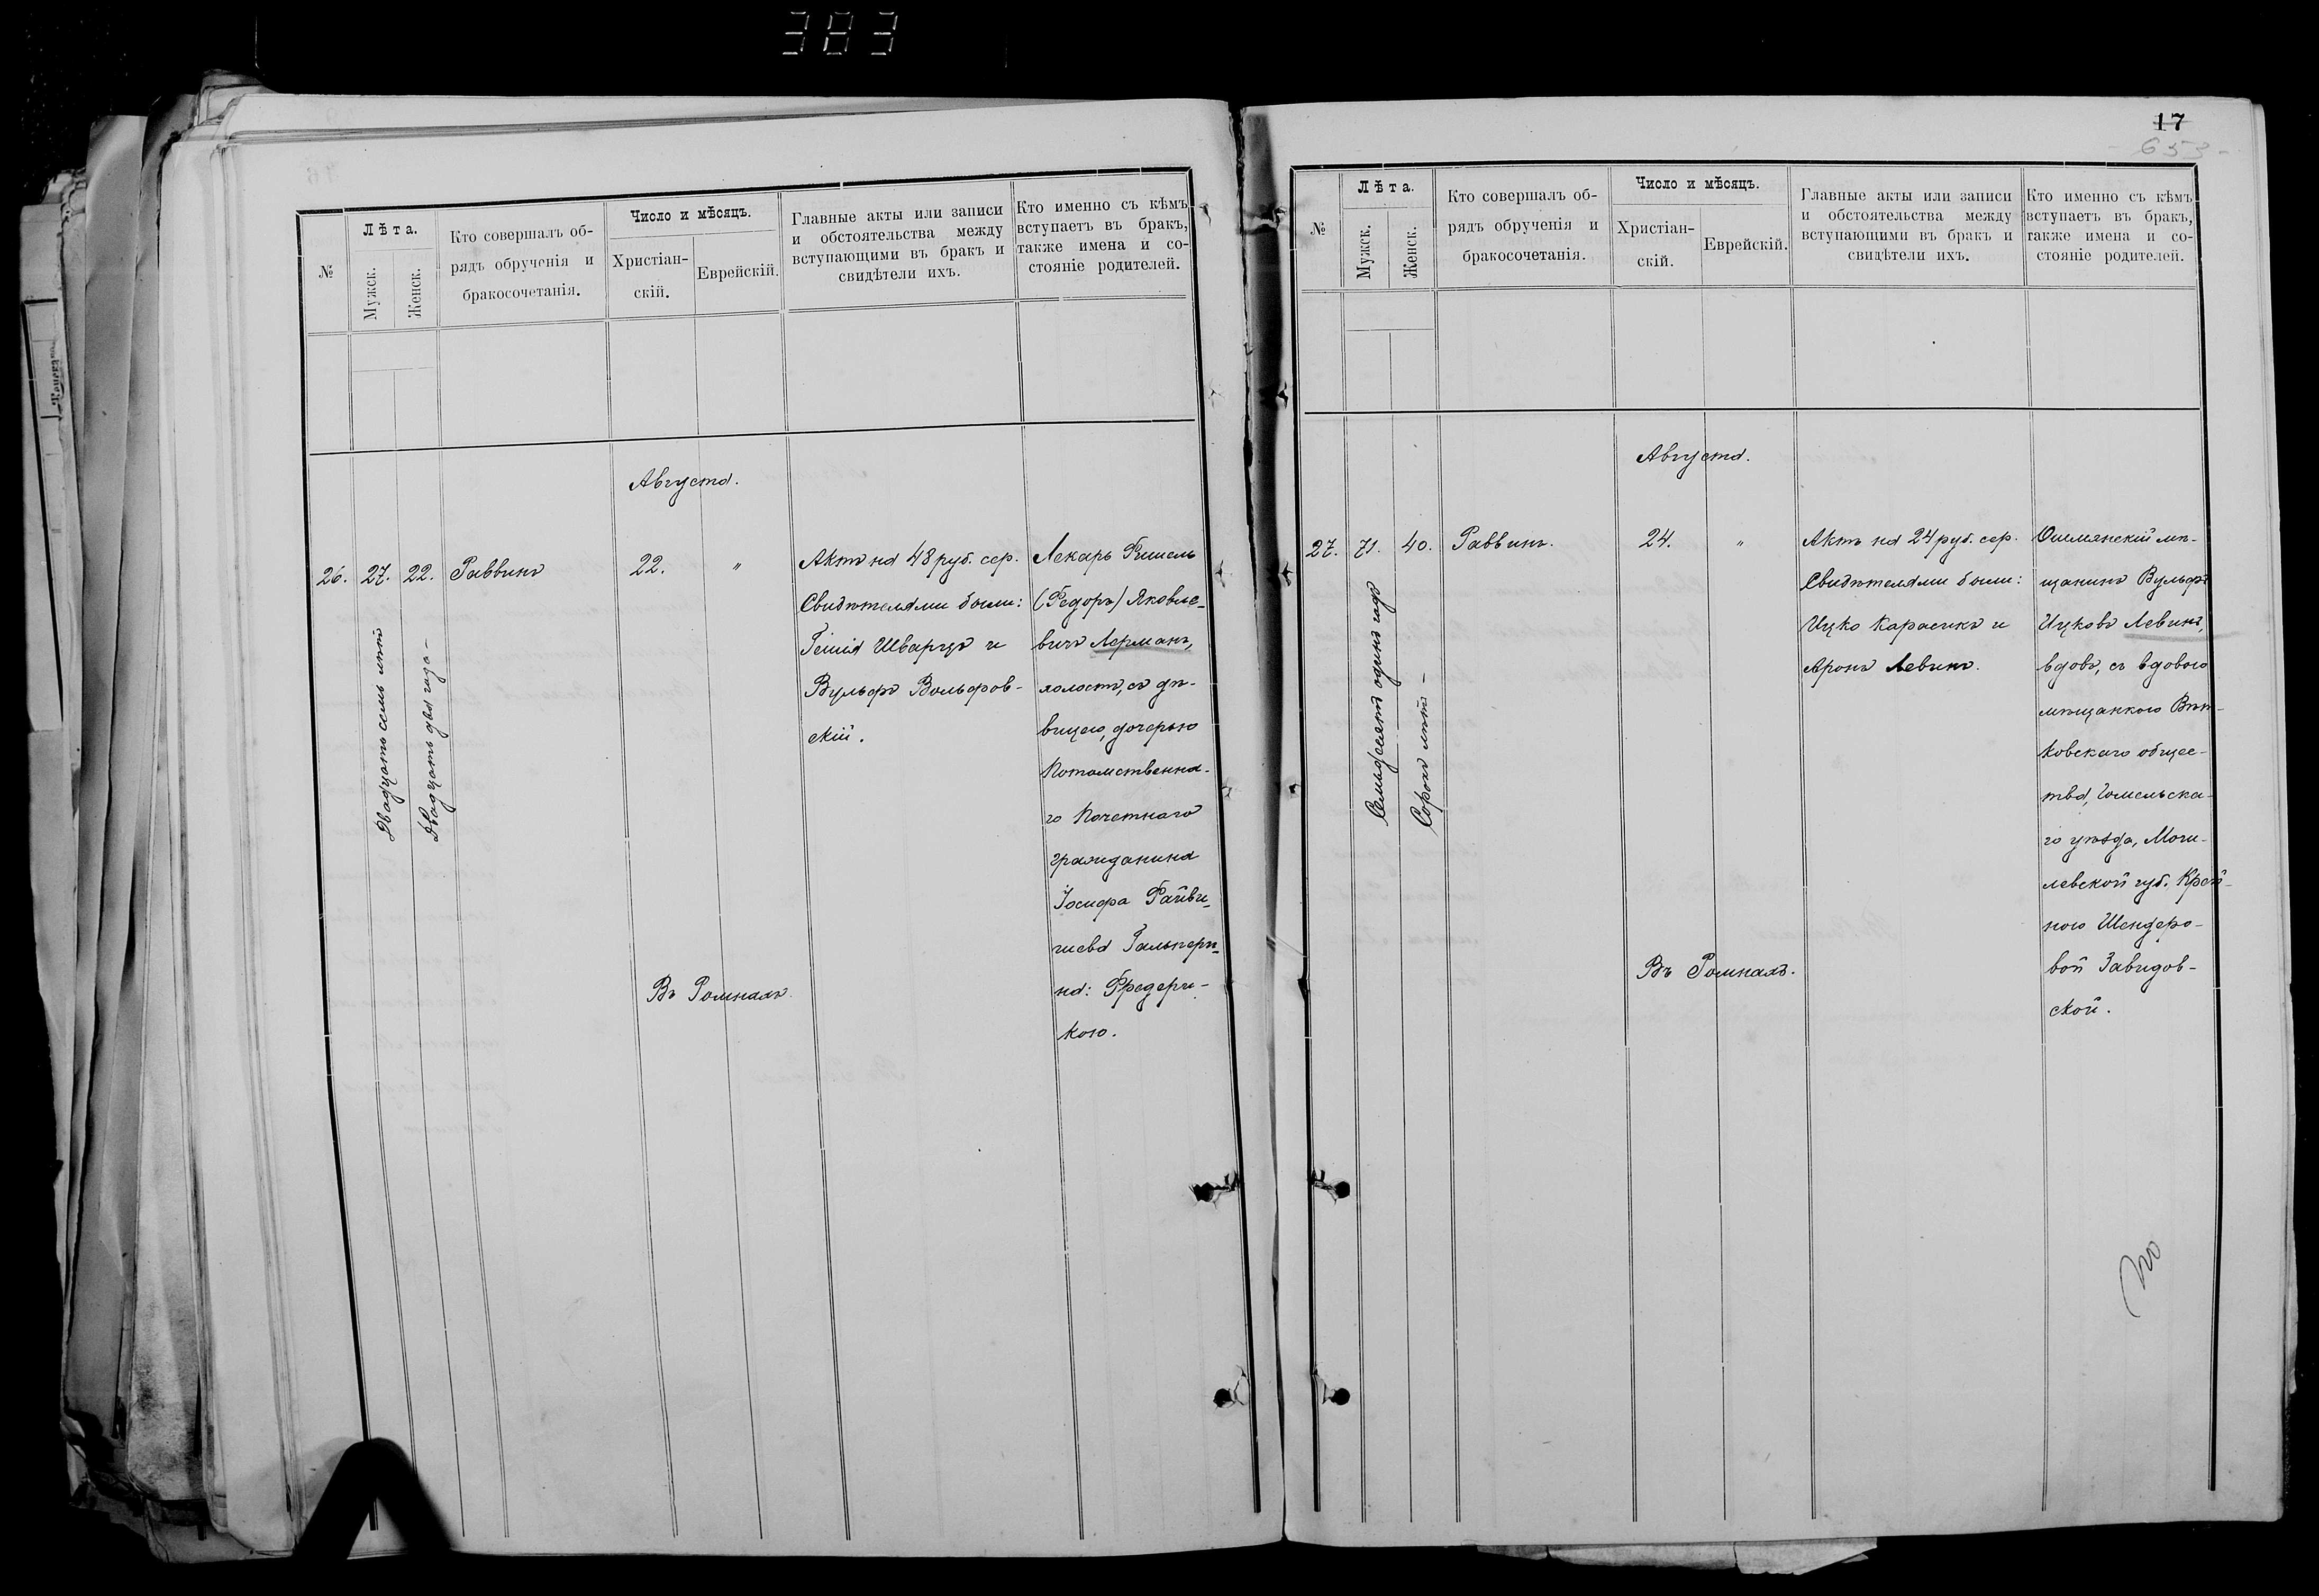 383
№
Лѣта.
Мужск.
Женск.
Кто совершалъ об-
рядъ обрученія и
бракосочетанія.
Число и мѣсяцъ.
Христіан-
скій.
Еврейскій.
Главные акты или записи
и обстоятельства между
вступающими въ бракъ и
свидѣтели ихъ.
Кто именно съ кѣмъ
вступаетъ въ бракъ,
также имена и со-
стояніе родителей.
Августа.
26.
27.
Двадцать семь лѣтъ
22.
Двадцать два года –
Раввинъ
22.
"
Въ Ромнахъ.
Актъ на 48 руб. сер.
Свидѣтелями были:
Шварцъ и
Вульфъ Вольфов-
скій.
Лекарь Фишель
(Федоръ) Яковле-
вичъ Лерманъ,
холостъ, съ дѣ-
вицею, дочерью
Потомственна-
го Почетнаго
гражданина
Іосифа Файви-
шева Гальпери-
на: Фредери-
кою.
17
653 -
№
Лѣта.
Мужск.
Женск.
Кто совершалъ об-
рядъ обрученія и
бракосочетанія.
Число и мѣсяцъ.
Христіан-
скій.
Еврейскій.
Главные акты или записи
и обстоятельства между
вступающими въ бракъ и
свидѣтели ихъ.
Кто именно съ кѣмъ
вступаетъ въ бракъ,
также имена и со-
стояніе родителей.
Августа.
27.
71.
Семьдесятъ одинъ годъ
40.
Сорокъ лѣтъ –
Раввинъ.
24.
"
Въ Ромнахъ.
Актъ на 24 руб. сер.
Свидѣтелями были:
Ицко Карасикъ и
Аронъ Левинъ.
Ошмянскій мѣ-
щанинъ Вульфъ
Ицковъ Левинъ,
вдовъ, съ вдовою
мѣщанкою Вѣт-
ковскаго общес-
тва, Гомельска-
го уѣзда, Моги-
левской губ. Крей-
ною Шендеро-
вой Завидов-
ской.